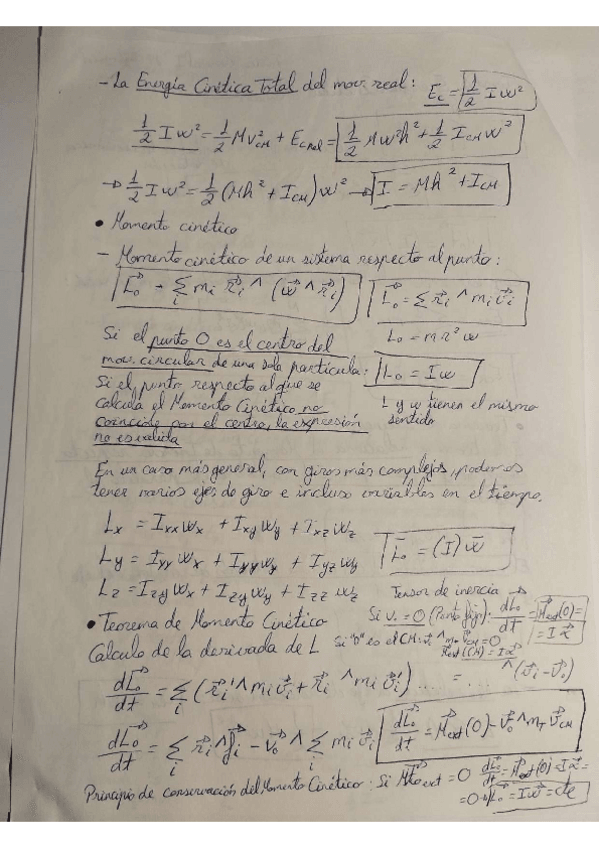 - La Energía Cinética Total del mov. real: E_c = 1/2 I w²
1/2 I w² = 1/2 M v²_CM + E_c Rel = 1/2 M w² h² + 1/2 I_CM w²
→ 1/2 I w² = 1/2 (M h² + I_CM) w² → I = M h² + I_CM
• Momento cinético
- Momento cinético de un sistema respecto al punto:
L⃗_o = Σ_i m_i r⃗_i ^ (w⃗ ^ r⃗_i) L⃗_o = Σ r⃗_i ^ m_i v⃗_i
L_o = m r² w
Si el punto O es el centro del
mov. circular de una sola partícula: L_o = I w
Si el punto respecto al que se
calcula el Momento Cinético no L y w tienen el mismo
coincide por el centro, la expresión sentido
no es válida
En un caso más general, con giros más complejos, podemos
tener varios ejes de giro e incluso variables en el tiempo.
L_x = I_xx w_x + I_xy w_y + I_xz w_z
L_y = I_xy w_x + I_yy w_y + I_yz w_z L̄_o = (I) w̄
L_z = I_zy w_x + I_zy w_y + I_zz w_z Tensor de inercia
• Teorema de Momento Cinético Si v_o = 0 (Punto fijo): dL⃗_o/dt = M⃗_ext(O) = I α⃗
Calculo de la derivada de L Si "O" es el CM: v⃗ ^ m_T v⃗_CM = 0
M⃗_ext (CM) = I α⃗
dL⃗_o/dt = Σ_i (r⃗_i' ^ m_i v⃗_i + r⃗_i ^ m_i v⃗_i') .... = .... ^ (v⃗_i - v⃗_o)
dL⃗_o/dt = Σ_i r⃗_i ^ f⃗_i - v⃗_o ^ Σ_i m_i v⃗_i dL⃗_o/dt = M⃗_ext(O) - v⃗_o ^ m_T v⃗_CM
Principio de conservación del Momento Cinético. Si M⃗_o ext = 0 dL⃗_o/dt = M⃗_ext(O) = I α⃗ =
= 0 → L⃗_o = I w⃗ = cte